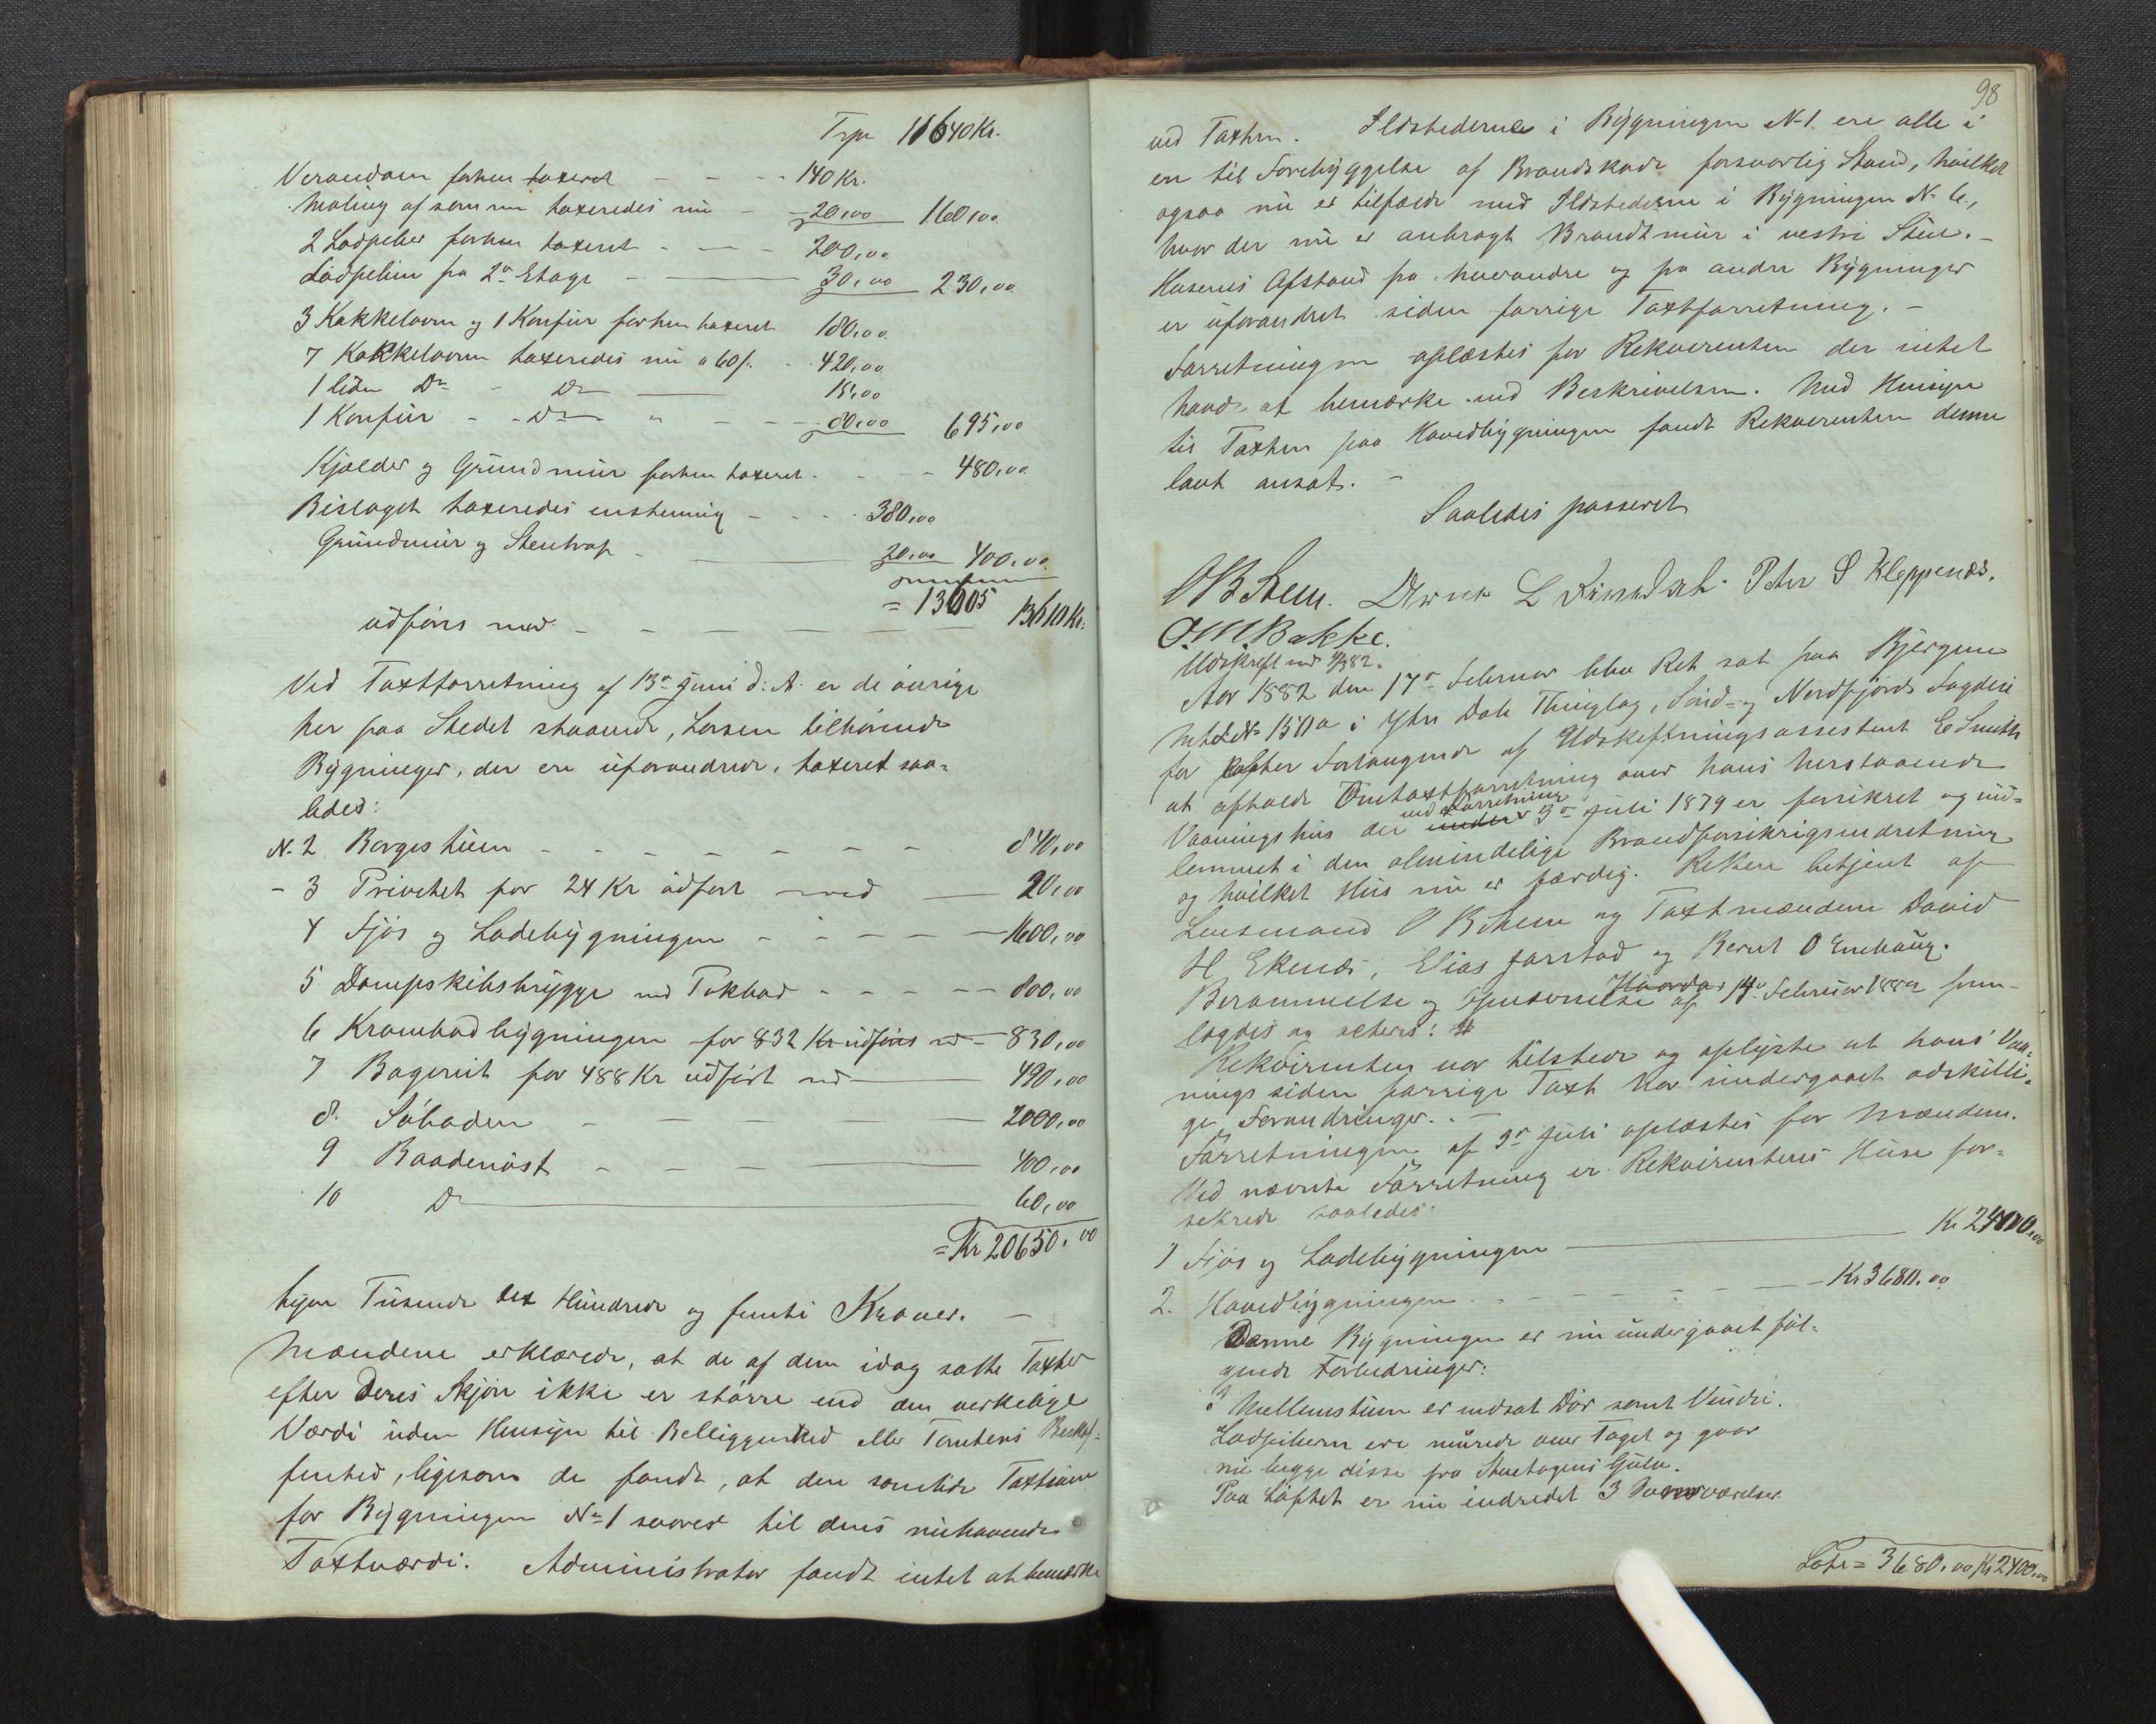 Trpr 11640 Kr.
Verandaen forhen taxeret - - - 140 Kr.
Maling af samme taxeredes nu - 20,00 160,00
2 Ladpiber forhen taxeret - - - 200,00
Ladpiben fra 2den Etage - 30,00 230,00
3 Kakkelovne og 1 Konfur forhen taxeret 180,00
7 Kakkelovne taxeredes nu a 60 . 420,00
1 liden Do - Do 15,00
1 Konfur - - Do " - - - 80,00 695,00
Kjælder og Grundmur forhen taxeret - - 480,00
Bislaget taxeredes enstemmig - - - 380,00
Grundmur og Stentrap - 20,00 400,00
= 13605
udføres med - - - - - 13610 Kr.
Ved Taxtforretning af 13de Juni d: A. er de øvrige
her paa Stedet staaende, Larsen tilhørende
Bygninger, der ere uforandrede, taxeret saa-
ledes:
No 2 Borgestuen - - - - - - - 840,00
- 3 Privetet for 24 Kr udført med 20,00
4 Fjøs og Ladebygningen - - - - - 1600,00
5 Dampskibsbrygge med Pakbod - - - - 800,00
6 Krambodbygningen for 832 Kr udføres m - 830,00
7 Bageriet for 488 Kr udført m 490,00
8. Søboden - - - - 2000,00
9 Baadenøst - - - 400,00
10 Do 60,00
= Kr 20650,00
tyve Tusende sex Hundrede og femti Kroner. -
Mændene erklærede, at de af dem idag satte Taxter
efter Deres Skjøn ikke er større end den verkelige
Værdi uden Hensyn til Belliggenhed eller Tomtens Beskaf-
fenhed, ligesom de fandt, at den samlede Taxtsum
for Bygningen No 1 svarer til dens nuhavende
Taxtværdi. Administrator fandt intet at bemærke
98
ved Taxten. Ildstederne i Bygningen No 1. ere alle i
en til Forebyggelse af Brandskade forsvarlig Stand, hvilket
ogsaa nu er tilfælde med Ildstederne i Bygningen No 6.,
hvor der nu er anbragt Brandtmur i vestre Stue. -
Husenes Afstand fra hverandre og fra andre Bygninger
er uforandret siden forrige Taxtforretning. -
Forretningen oplæstes for Rekvirenten der intet
havde at bemærke ved Beskrivelsen. Med Hensyn
til Taxten paa Hovedbygningen fandt Rekvirenten denne
lavt ansat. -
Saaledes passeret
O B Lem. L Peter S Kleppenæs.
O. M. Bakke.
Udskrift med 4/3 82.
Aar 1882 den 17de Februar blev Ret sat paa Bjergene
Matr L No 150a i Ytre Dale Thinglag, Sønd- og Nordfjords Fogderi
for efter Forlangende af Udskiftningsassestent E Smith
at afholde Omtaxtforretning over hans herstaaende
ved Forretning
Vaaningshus der under 3de Juli 1879 er forsikret og ind-
lemmet i den almindelige Brandforsikrigsindretning
og hvilket Hus nu er færdig. Retten betjent af
Lensmand O B Lem og Taxtmændene David
H Ekenæs, Elias Jarstad og Bernt O Enehaug.
Berammelse og af 14de Februar 1882 frem-
lagdes og acteres: #
Rekvirenten var tilstede og oplyste at hans Vaa-
nings siden forrige Taxt har undergaaet adskilli-
ge Forandringer. -
Forretningen af 3de Juli oplæstes for Mændene.
Ved nævnte Forretning er Rekvirentens Huse for-
sekrede saaledes:
1 Fjøs og Ladebygningen Kr 2400,00
2. Hovedbygningen - - - - - - Kr 3680,00
Denne Bygningen er nu undergaaet føl-
gende Forbedringer:
I Mellemstuen er indsat Dør samt Vindu.
Ladpiberne ere murede over Taget og gaar
nu begge disse fra Stuetagens Gulv.
Paa Loftet er nu indredet 3 værelser.
Late = 3680,00 Kr 2400,00